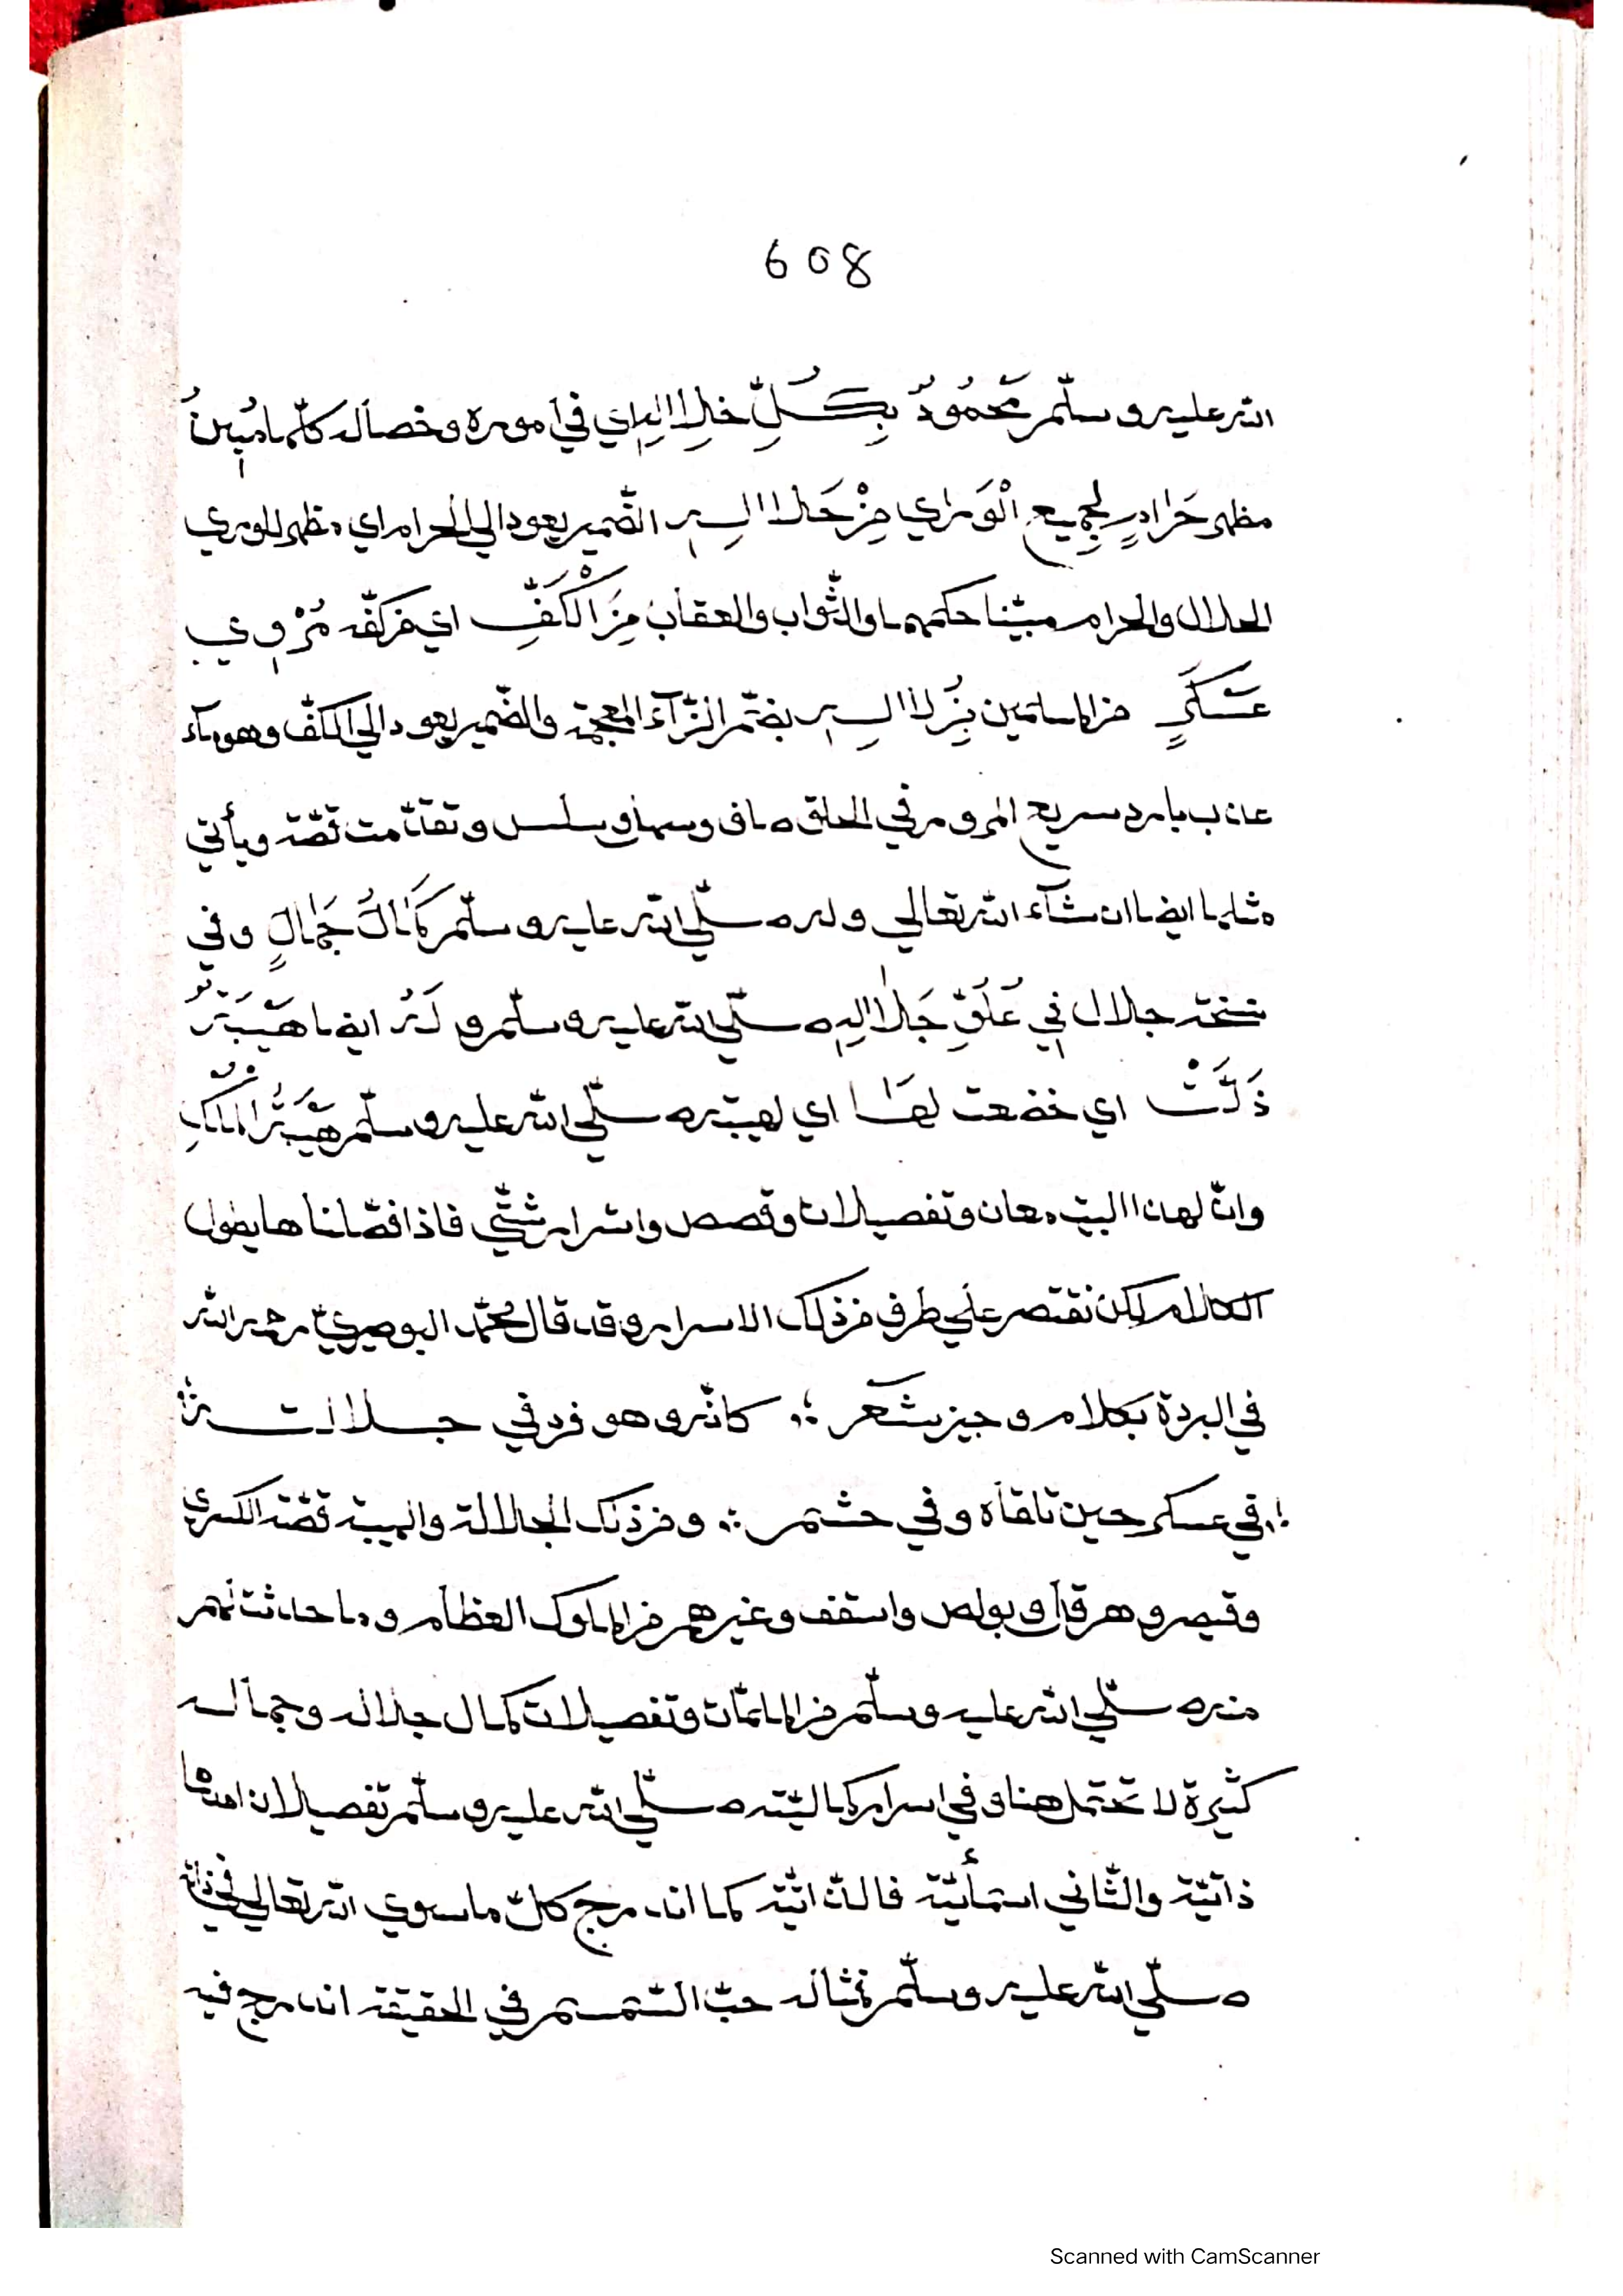 608
الله عليه وسلّم مَحْمُودٌ بِكُلِّ خِلَالِهِ اي في اموره وخصاله كلّها مُبِينُ
مظهر حَرَامٍ لِجَمِيعِ الْوَرٰي مِنْ حَلَالِهِ الضّمير يعود الي الحرام اي مظهر للوري
الحلال والحرام مبيّنا حكمهما والثّواب والعقاب مِنَ الْكَفِّ اي من كفّه مُرْوِي
عَسْكَرٍ من المسلمين بِزُلَالِهِ بضمّ الزّآء المعجمة والضّمير يعود الي الكفّ وهو مآء
عذب بارد سريع المرور في الحلق صاف وسهل وسلس وتقدّمت قصّة ويأتي
مثلها ايضا ان شآء الله تعالي وله صلّي الله عليه وسلّم كَمَالُ جَمَالٍ وفي
نسخة جلال فِي عُلُوِّ جَلَالِهِ صلّي الله عليه وسلّم و لَهُ ايضا هَيْبَةٌ
ذَلَّتْ اي خضعت لَهَا اي لهيبته صلّي الله عليه وسلّم هَيْبَةُ الْمُلْكِ
وانّ لهذا البيت معان وتفصيلات وقصص واسرار شتّي فاذا فصّلناها يطول
الكلام لكن نقتصر علي طرف من ذلك الاسرار وقد قال محمّد البوصيريّ رحمه الله
في البردة بكلام وجيز شعر ؞ كانّه وهو فرد في جلالته
؞ في عسكر حين تلقاه وفي حشم ؞ ومن ذلك الجلالة والهيبة قصّة الكسري
وقيصر وهرقل وبولص واسقف وغيرهم من الملوك العظام وما حدثت لهم
منه صلّي الله عليه وسلّم من الملمّات وتفصيلات كمال جلاله وجماله
كثيرة لا تحتمل هنا وفي اسرار كماليّته صلّي الله عليه وسلّم تفصيلان احدهما
ذاتيّة والثّاني اسمائيّة فالذّاتيّة كما اندرج كلّ ما سوي الله تعالي في ذاته
صلّي الله عليه وسلّم مثاله حبّ السّمسم في الحقيقة اندرج فيه
Scanned with CamScanner